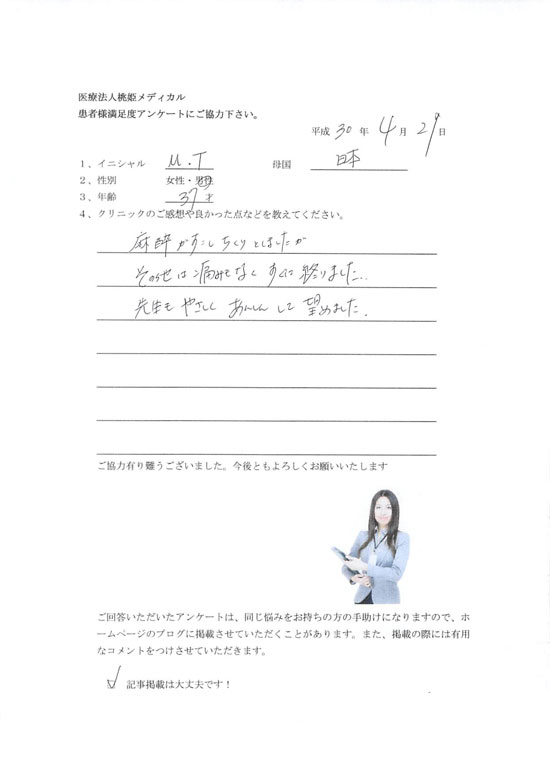 医療法人桃姫メディカル
患者様満足度アンケートにご協力下さい。
平成 30 年 4 月 29 日
1、イニシャル M.T 母国 日本
2、性別 女性・男性
3、年齢 37 才
4、クリニックのご感想や良かった点などを教えてください。
麻酔がすこしちくりとしましたが
その他は痛みもなくすぐに終りました。
先生もやさしくあんしんして望めました。
ご協力有り難うございました。今後ともよろしくお願いいたします
ご回答いただいたアンケートは、同じ悩みをお持ちの方の手助けになりますので、ホ
ームページのブログに掲載させていただくことがあります。また、掲載の際には有用
なコメントをつけさせていただきます。
記事掲載は大丈夫です！